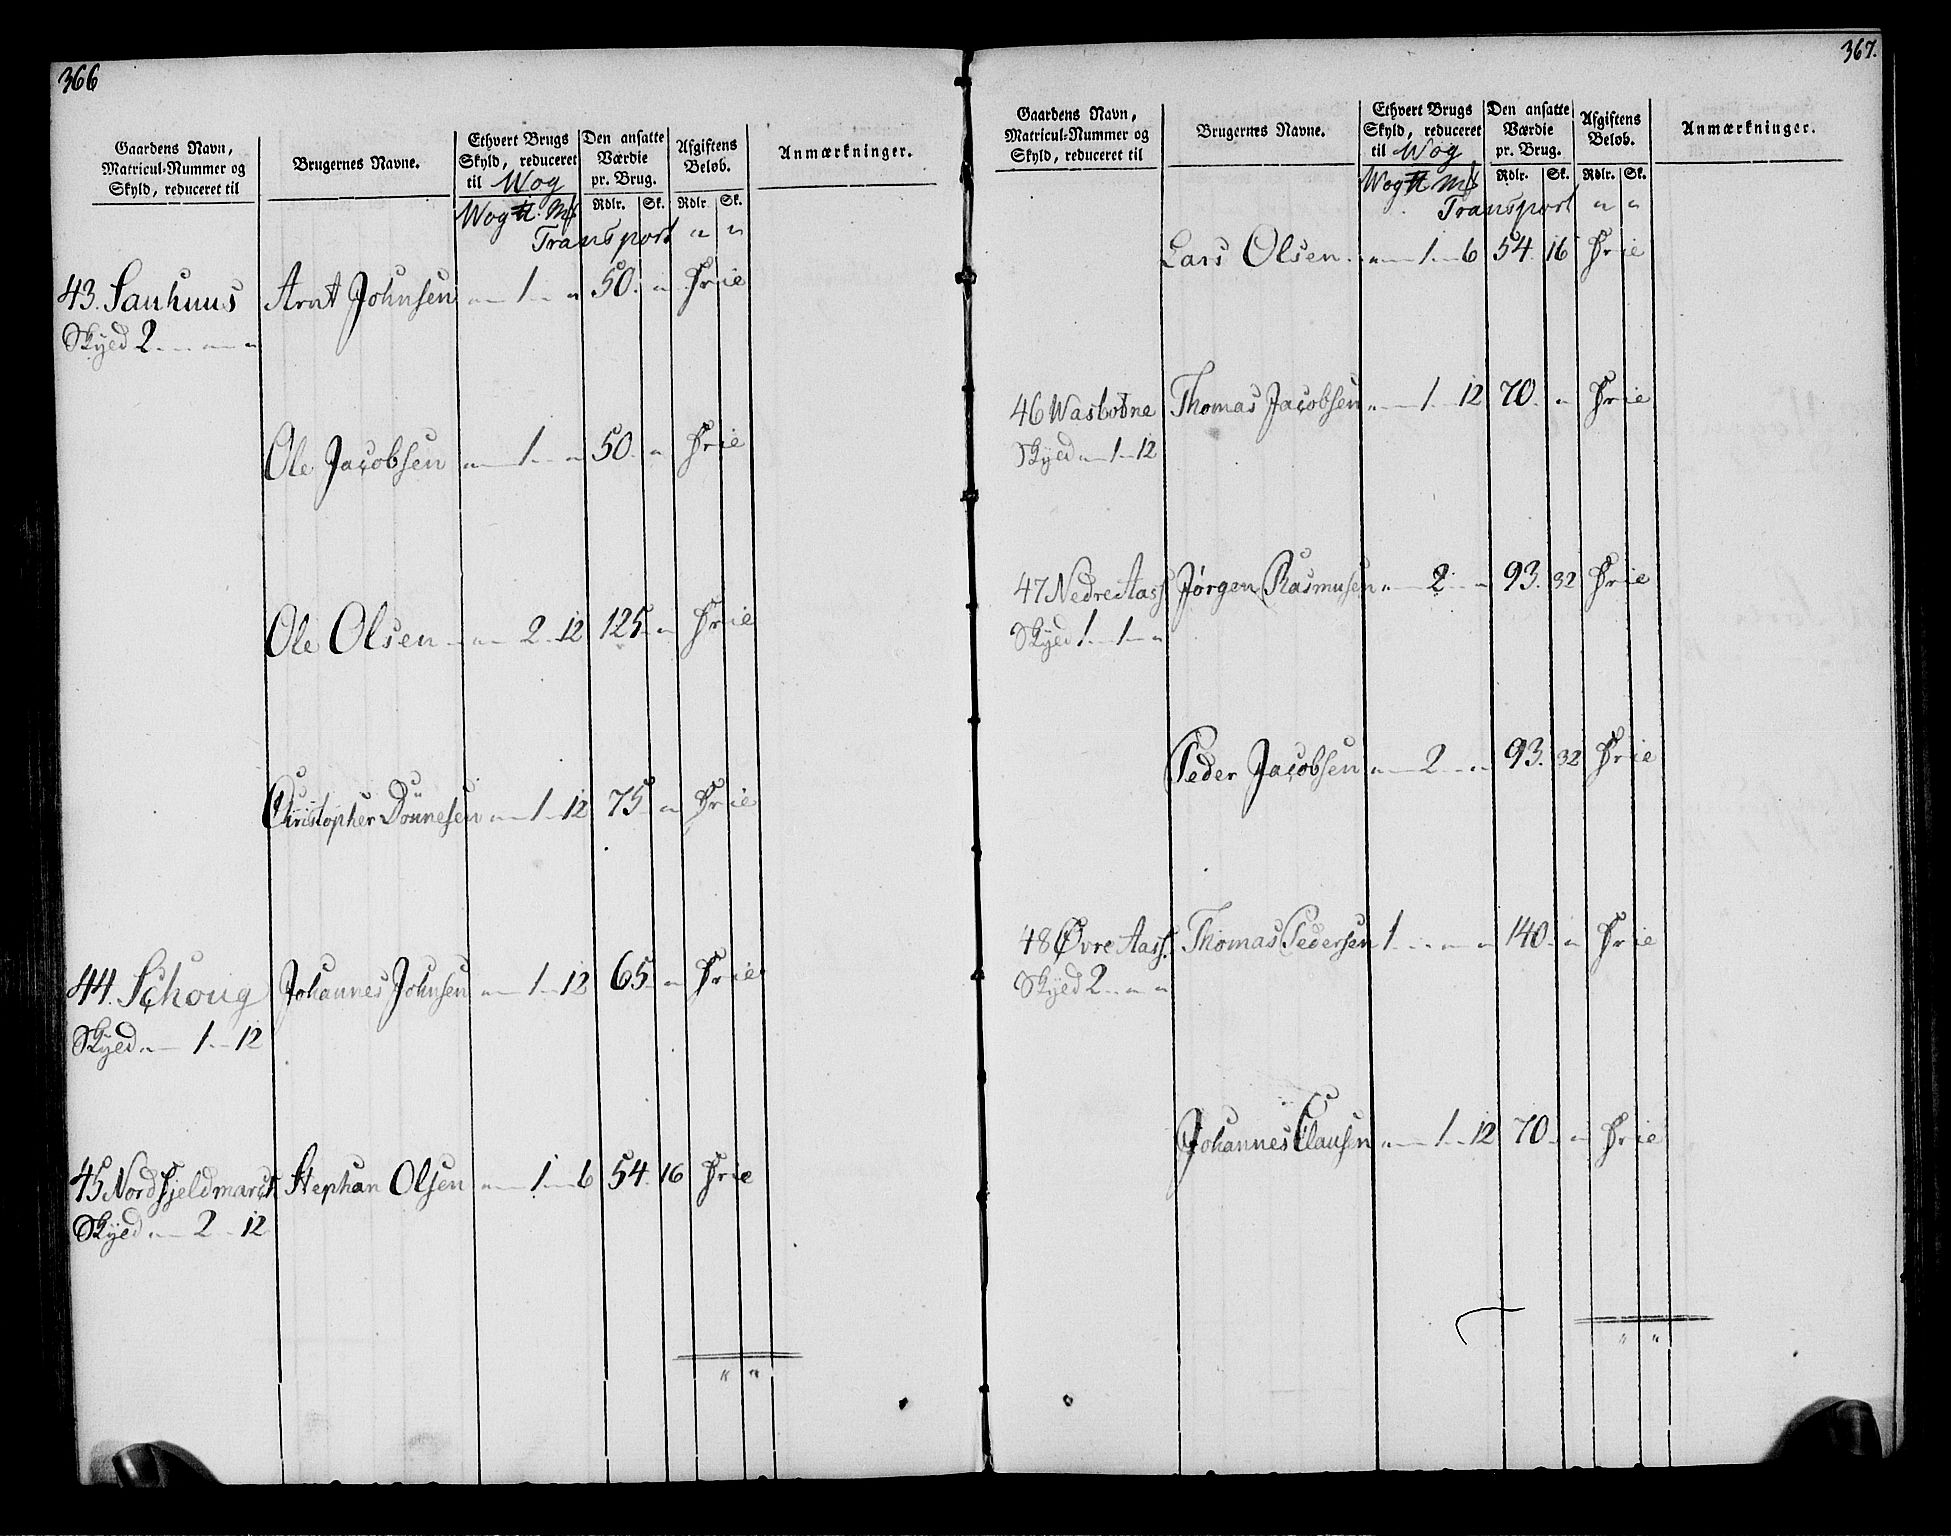 366
Gaardens Navn,
Matricul-Nummer og
Skyld, reduceret til
Brugernes Navne.
Ethvert Brugs
Skyld, reduceret
til Wog
Den ansatte
Værdie
pr. Brug.
Afgiftens
Beløb.
Anmærkninger.
Wog ℔. Mk Rdlr. Sk. Rdlr. Sk.
Transport " "
43. Sanhuus Arnt Johnsen " 1 " 50. " Frie
Skyld 2 " "
Ole Jacobsen " 1 " 50. " Frie
Ole Olsen " 2 12 125 " Frie
Christopher Dönnesen " 1 12 75 " Frie
44. Schoug Johannes Johnsen " 1 12 65 " Frie
Skyld " 1 12
45 Nordfjeldmarck Stephan Olsen " 1 6 54. 16 Frie
Skyld " 2 12
" "
367.
Gaardens Navn,
Matricul-Nummer og
Skyld, reduceret til
Brugernes Navne.
Ethvert Brugs
Skyld, reduceret
til Wog
Den ansatte
Værdie
pr. Brug.
Afgiftens
Beløb.
Anmærkninger.
Wog ℔ Mk Rdlr. Sk. Rdlr. Sk.
Transport " "
Lars Olsen " 1 6 54. 16 Frie
46 Wasbotne Thomas Jacobsen " 1 12 70. " Frie
Skyld " 1 12
47 Nedre Aass Jørgen Rasmusen " 2 " 93. 32 Frie
Skyld 1 1 "
Peder Jacobsen " 2 " 93. 32 Frie
48 Øvre Aass. Thomas Pedersen 1 " " 140 " Frie
Skyld 2 " "
Johannes Clausen " 1 12 70 " Frie
" "